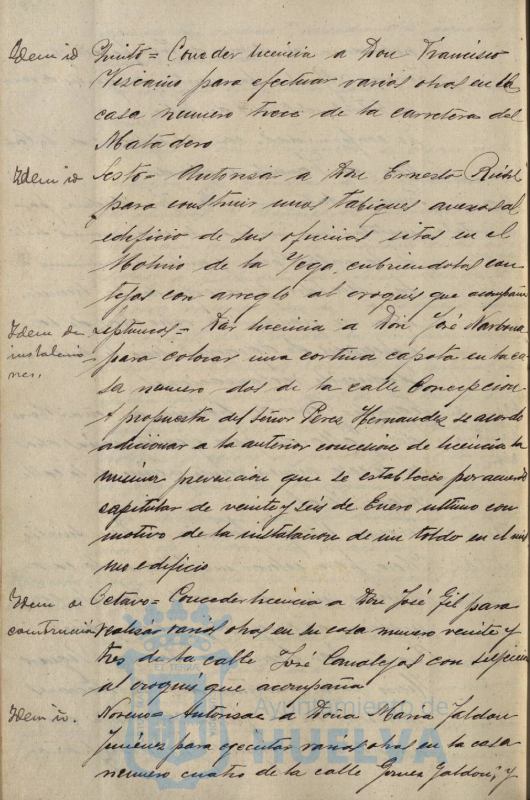 Idem id Quinto = Conceder licencia a Don Francisco
Vizcaino para efectuar varias obras en la
casa numero trece de la carretera del
Matadero
Idem id Sesto = Autorizar a Don Ernesto
para construir unos tabiques anexos al
edificio de sus oficinas sitas en el
Molino de la Vega, cubriendolos con
tejas con arreglo al croquis que acompaña
Idem de Septimo = Dar licencia a Don José Narbona
instalacio- para colocar una cortina capota en la ca-
nes. sa numero dos de la calle Concepcion
A propuesta del Señor Perez Hernandez se acordó
adicionar a la anterior concesion de licencia la
misma prevencion que se establecio por acuerdo
capitular de veinte y seis de Enero ultimo con
motivo de la instalacion de un toldo en el mis
mo edificio
Idem de Octavo = Conceder licencia a Don José Gil para
construccion realizar varias obras en su casa numero veinte y
tres de la calle José Canalejas con sujecion
al croquis que acompaña
Idem id. Noveno = Autorizar a Doña Maria Jaldon
Jiménez para ejecutar varias obras en la casa
numero cuatro de la calle Jaldon, y
Ayuntamiento de
HUELVA